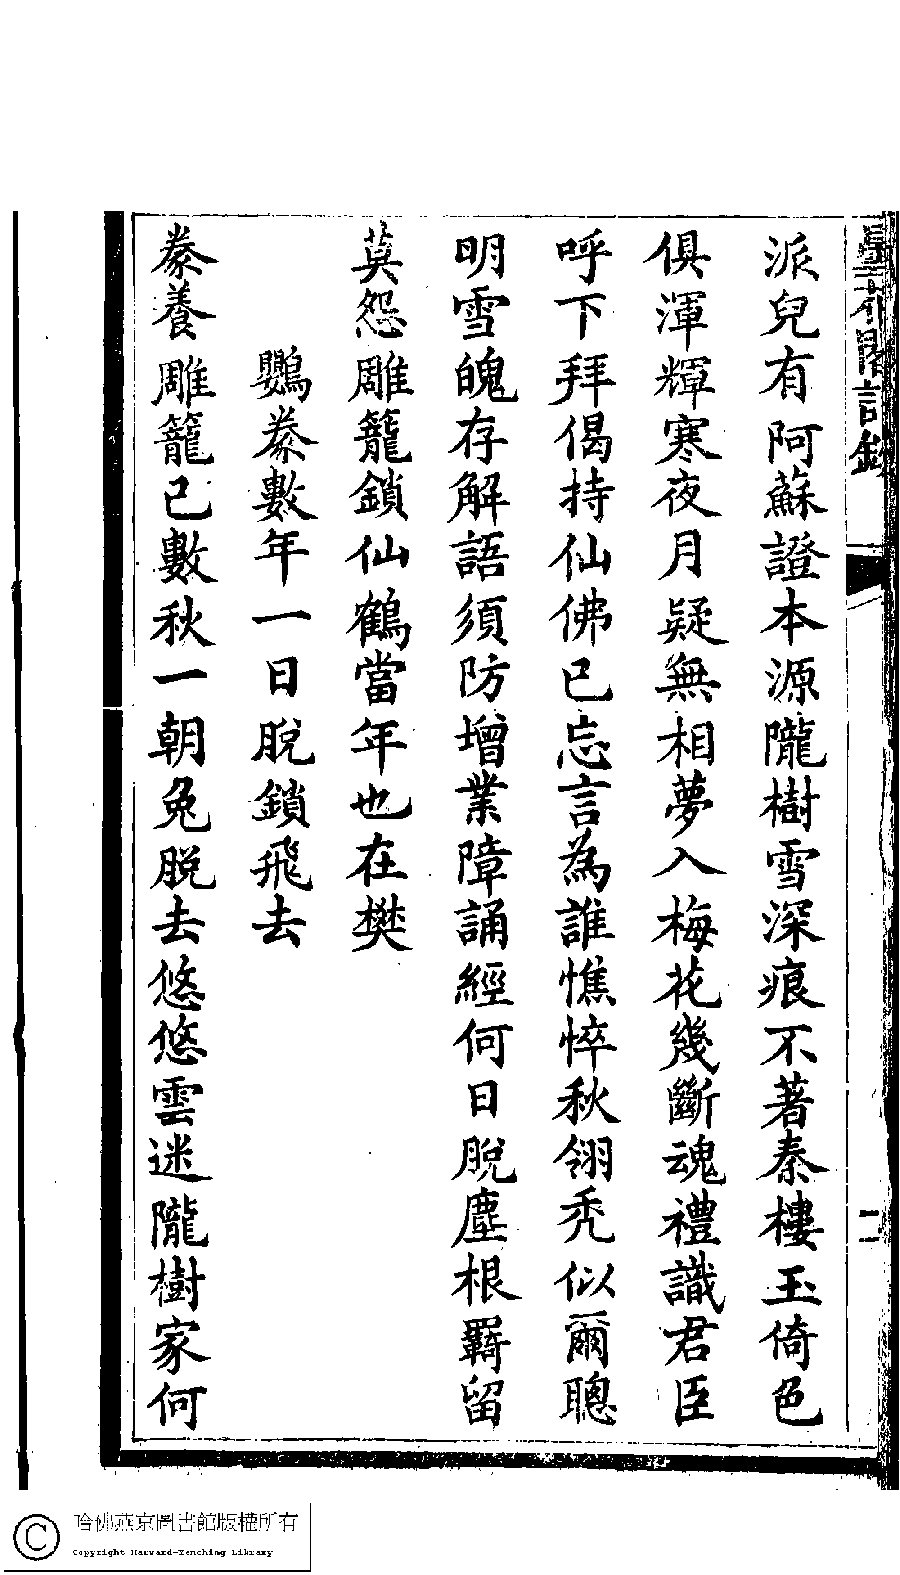 派兒有阿蘇證本源隴樹雪深痕不著秦樓玉倚色
俱渾輝寒夜月疑無相夢入梅花幾斷魂禮識君臣
呼下拜偈持仙佛已忘言為誰憔悴秋翎禿似爾聰
明雪魄存解語須防增業障誦經何日脫塵根羇留
莫怨雕籠鎖仙鶴當年也在樊
鸚豢數年一日脫鎖飛去
豢養雕籠已數秋一朝兔脫去悠悠雲迷隴樹家何
閣詩鈔
二
哈佛燕京圖書館版權所有
Copyright Harvard-Yenching Library